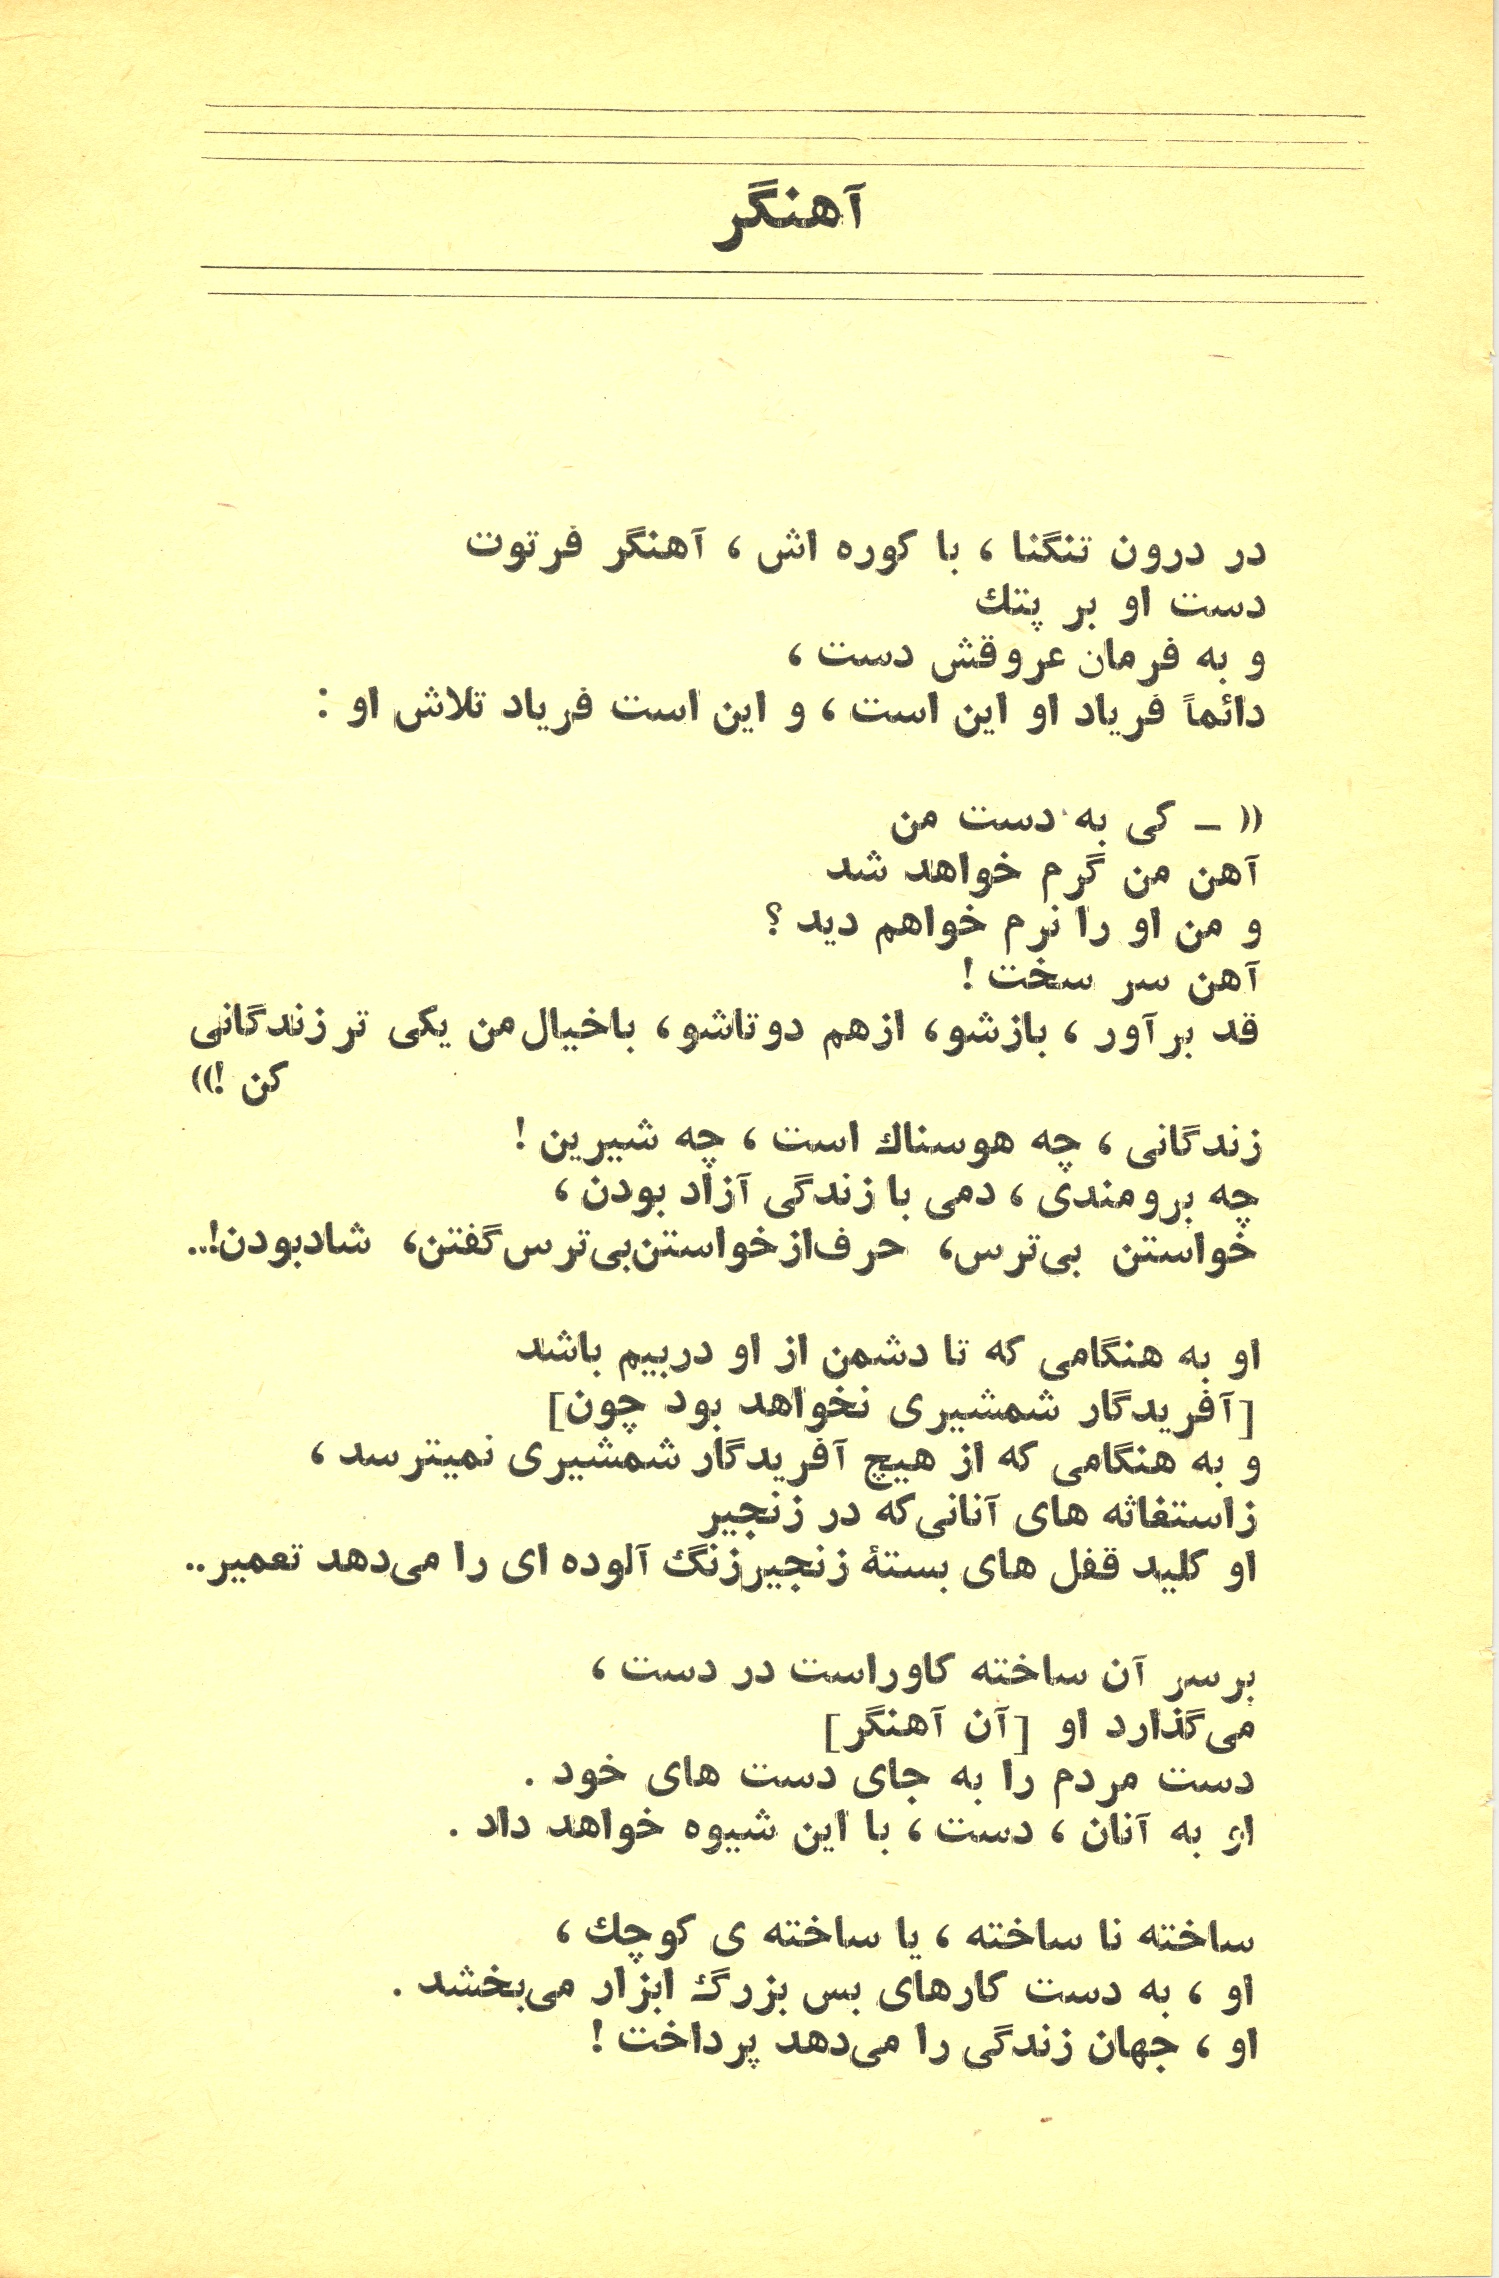 آهنگر
در درون تنگنا ، با کوره اش ، آهنگر فرتوت
دست او بر پتك
و به فرمان عروقش دست ،
دائماً فریاد او این است ، و این است فریاد تلاش او :
(( ــ کی به دست من
آهن من گرم خواهد شد
و من او را نرم خواهم دید ؟
آهن سر سخت !
قد برآور ، بازشو، ازهم دوتاشو، باخیال من یکی تر زندگانی
کن !))
زندگانی ، چه هوسناك است ، چه شیرین !
چه برومندی ، دمی با زندگی آزاد بودن ،
خواستن بی‌ترس، حرف‌ازخواستن‌بی‌ترس‌گفتن، شادبودن!..
او به هنگامی که تا دشمن از او دربیم باشد
[آفریدگار شمشیری نخواهد بود چون]
و به هنگامی که از هیچ آفریدگار شمشیری نمیترسد ،
زاستغاثه های آنانی‌که در زنجیر
او کلید قفل های بستهٔ زنجیرزنگ آلوده ای را می‌دهد تعمیر..
برسر آن ساخته کاوراست در دست ،
می‌گذارد او [آن آهنگر]
دست مردم را به جای دست های خود .
او به آنان ، دست ، با این شیوه خواهد داد .
ساخته نا ساخته ، یا ساخته ی کوچك ،
او ، به دست کارهای بس بزرگ ابزار می‌بخشد .
او ، جهان زندگی را می‌دهد پرداخت !